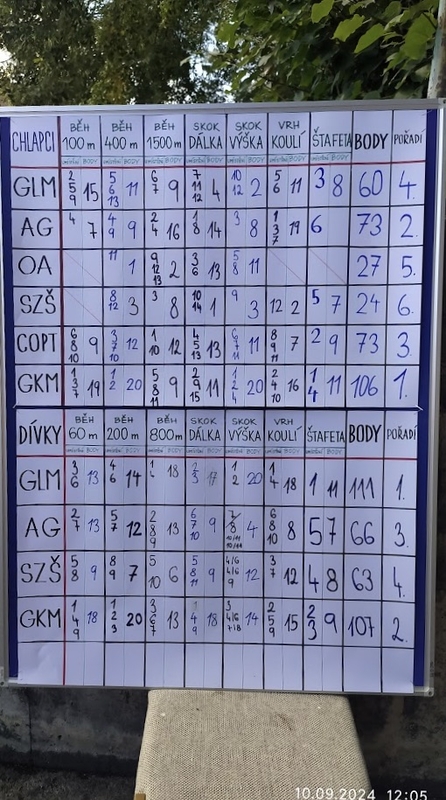 CHLAPCI BĚH 100 m BĚH 400 m BĚH 1500 m SKOK DÁLKA SKOK VÝŠKA VRH KOULÍ ŠTAFETA BODY POŘADÍ
umístění BODY umístění BODY umístění BODY umístění BODY umístění BODY umístění BODY umístění BODY
GLM 2 5 9 15 5 6 13 11 6 7 9 7 11 12 4 10 12 2 5 6 11 3 8 60 4.
AG 4 7 4 9 9 2 4 16 1 8 14 3 8 1 3 7 19 6 73 2.
OA 11 1 9 12 13 2 3 6 13 5 8 11 27 5.
SZŠ 8 12 3 3 8 10 14 1 9 3 12 2 5 7 24 6.
COPT 6 8 10 9 3 7 10 12 1 10 12 4 5 13 13 6 7 11 11 8 9 11 7 2 9 73 3.
GKM 1 3 7 19 1 2 20 5 8 11 9 2 9 15 11 1 2 4 20 2 4 10 16 1 4 11 106 1.
DÍVKY BĚH 60 m BĚH 200 m BĚH 800 m SKOK DÁLKA SKOK VÝŠKA VRH KOULÍ ŠTAFETA BODY POŘADÍ
umístění BODY umístění BODY umístění BODY umístění BODY umístění BODY umístění BODY umístění BODY
GLM 3 6 13 4 6 14 1 4 18 2 3 17 1 2 20 1 4 18 1 11 111 1.
AG 2 7 13 5 7 12 2 8 9 13 6 7 10 9 10/11 10/11 4 6 8 10 8 5 7 66 3.
SZŠ 5 8 9 8 9 7 5 10 6 5 8 11 9 4/6 4/6 9 12 3 7 12 4 8 63 4.
GKM 1 4 9 18 1 2 3 20 3 6 7 13 1 4 9 18 3 4/6 7/8 14 2 5 9 15 2 3 9 107 2.
10.09.2024 12:05